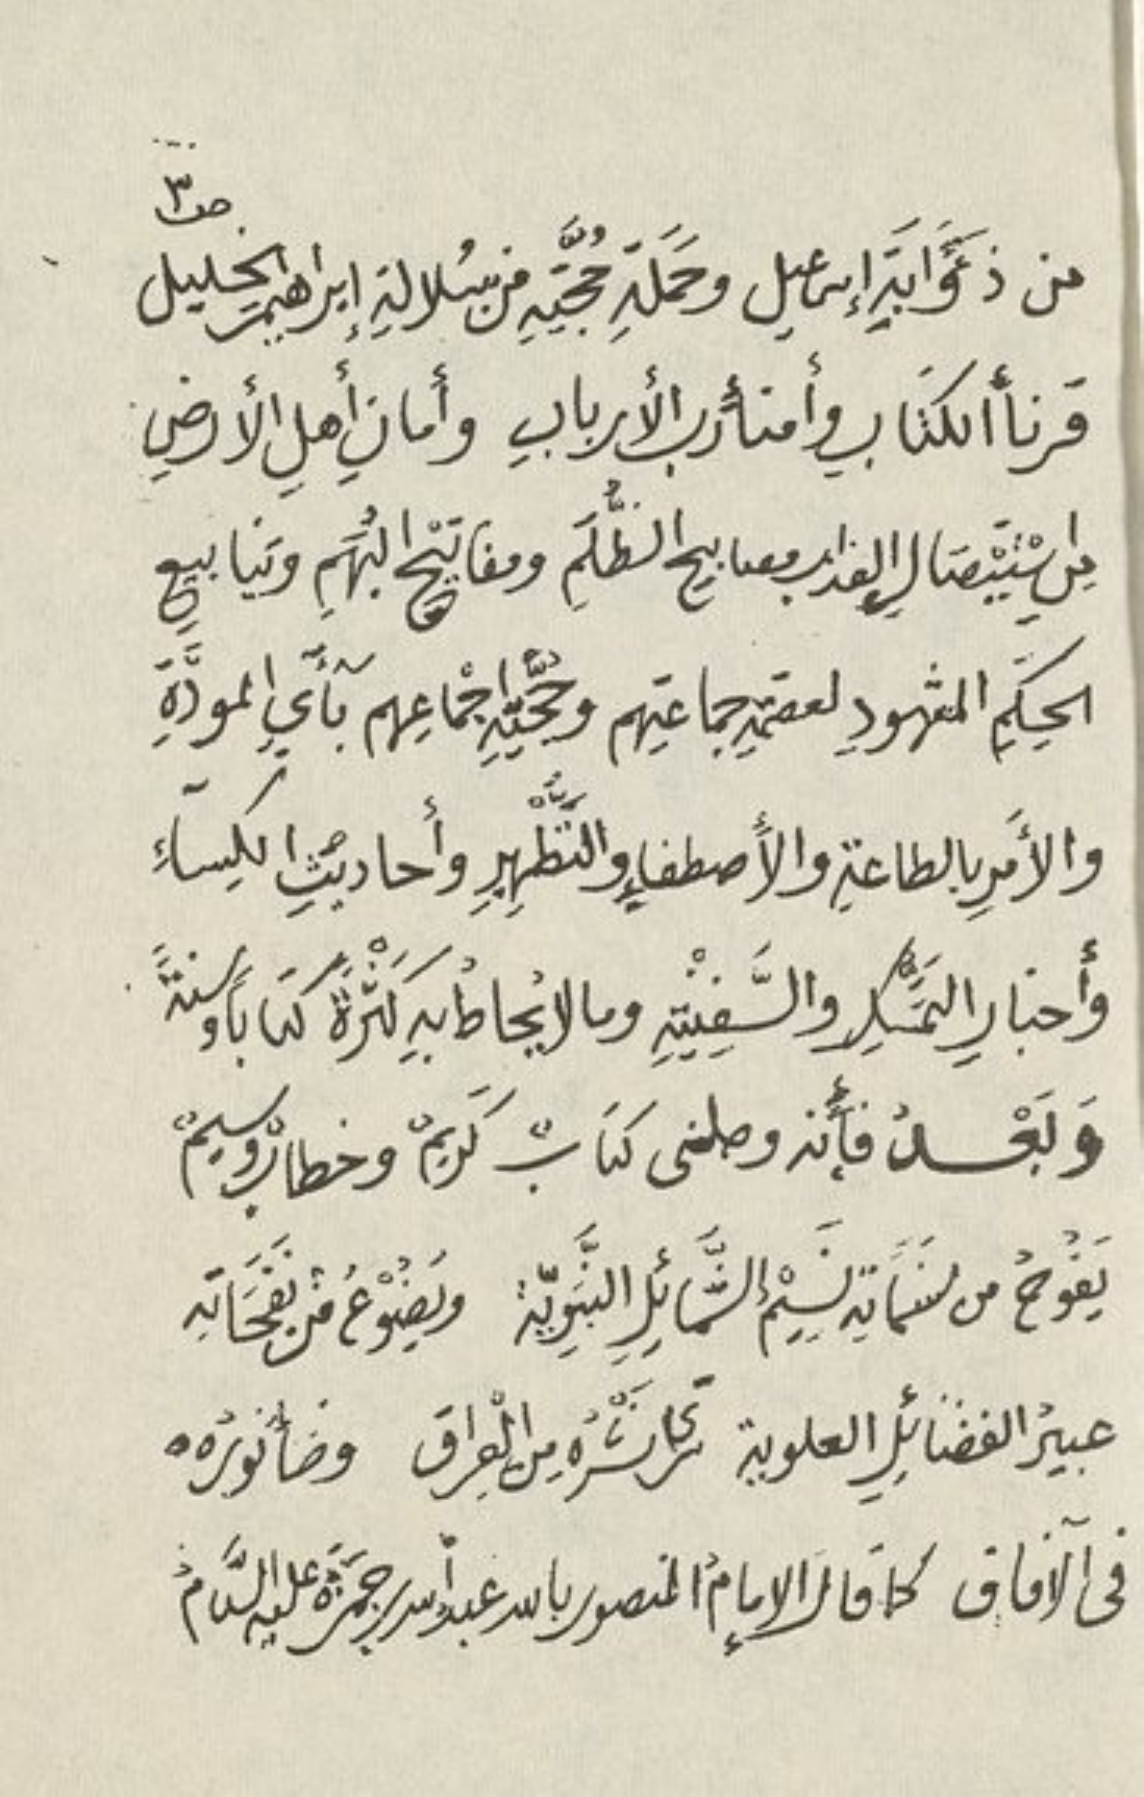 ص٣
من ذُؤَابَةِ إسماعيل وحَمَلَةِ حُجَّتِهِ من سُلالةِ إبراهيم الخليل
قرنأ الكتابِ وأمنأ ربِ الأربابِ وأمانِ أهلِ الأرضِ
مِن اسْتِئْصَالِ العذاب مصابيح الظُّلَمِ ومفاتِيْحِ البُهَمِ وينابيعِ
الحِكَمِ المشهودِ لعصمةِ جماعتِهم وحُجِّيَّةِ إجْماعِهم بآيِ المودَّةِ
والأمرِ بالطاعةِ والأصطفاءِ والتَّطْهِيرِ وأحاديثِ الكِسآءِ
وأخبارِ التمَسُّكِ والسَّفِيْنَةِ ومالا يُحاطُ بهِ كَثْرَةً كتاباً وسنةً
وَبَعْــدُ فأِنه وصلنى كتابٌ كَريمٌ وخطابٌ وسيمٌ
يَفُوحُ من نسَمَاتِه نَسِيْمُ الشَّمائِلِ النَّبَوِيّة ويَضُوْعُ من نَفَحَاتِه
عبيرُ الفضائِلِ العلوية نَشْرُه مِن العِراق وضأ نورُه
فى الآفاق كما قال الإمامُ المنصور بالله عبدالله بن حمزة عليه السَّلامُ